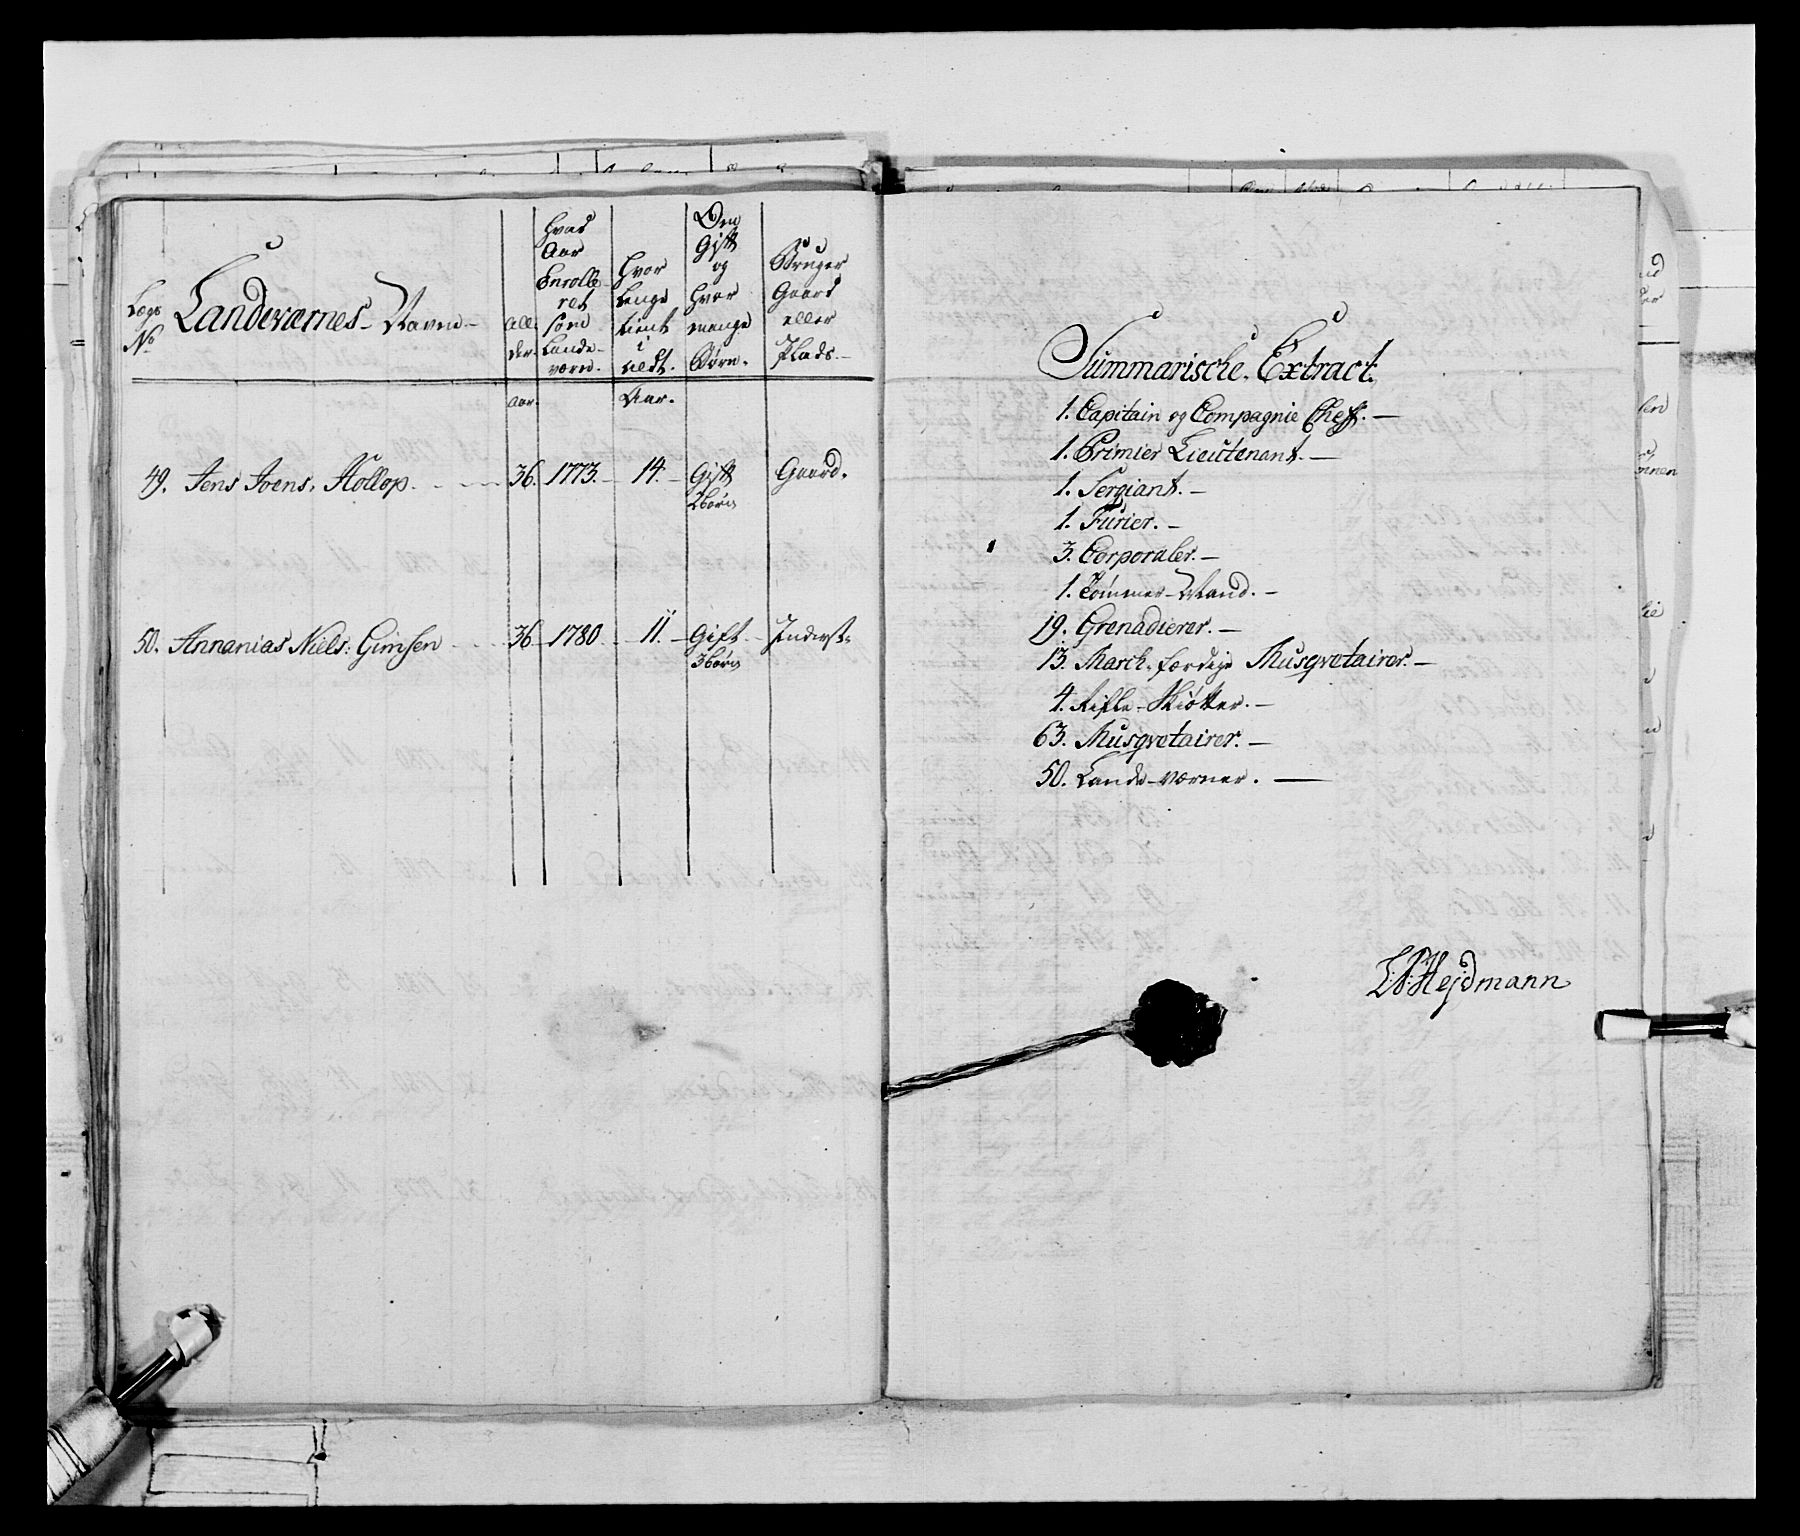 Lægs No
Landeværnes Navne
All: der.
hvad Aar Enrolleret som Landeværn.
hvor længe tient i alt.
Om Gift og hvor mange Børn.
Bruger Gaard eller Plads.
Aar.
Aar.
49. Jens Joens. Hollop. 36. 1773. 14. Gift 2 børn Gaard.
50. Annanias Niels: Gimsen 36 1780 11. Gift 3 børn Inderst
Summarische Extract.
1. Capitain og Compagnie Cheff.
1. Primier Lieutenant.
1. Sergiant.
1. Furier.
3. Corporaler.
1. Tømmer-Mand.
19. Grenadierer.
13. March-færdige Musqvetairer.
4. Rifle-Skiøtter.
63. Musqvetairer.
50. Lande-værner.
Hejdmann